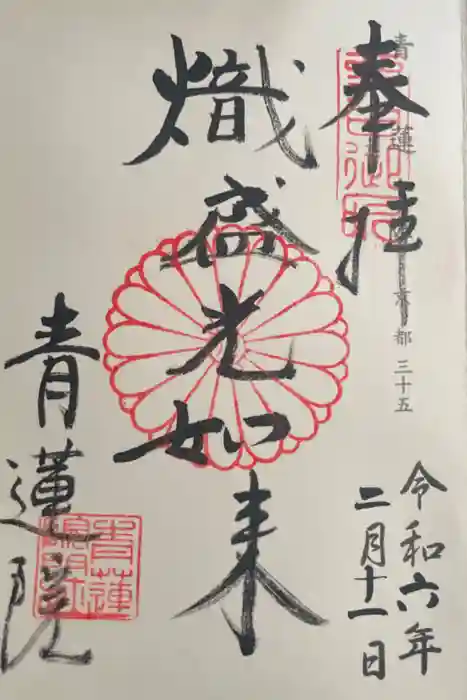 奉拝
青蓮
京都三十五
令和六年
二月十一日
熾盛光如来
青蓮院
青蓮